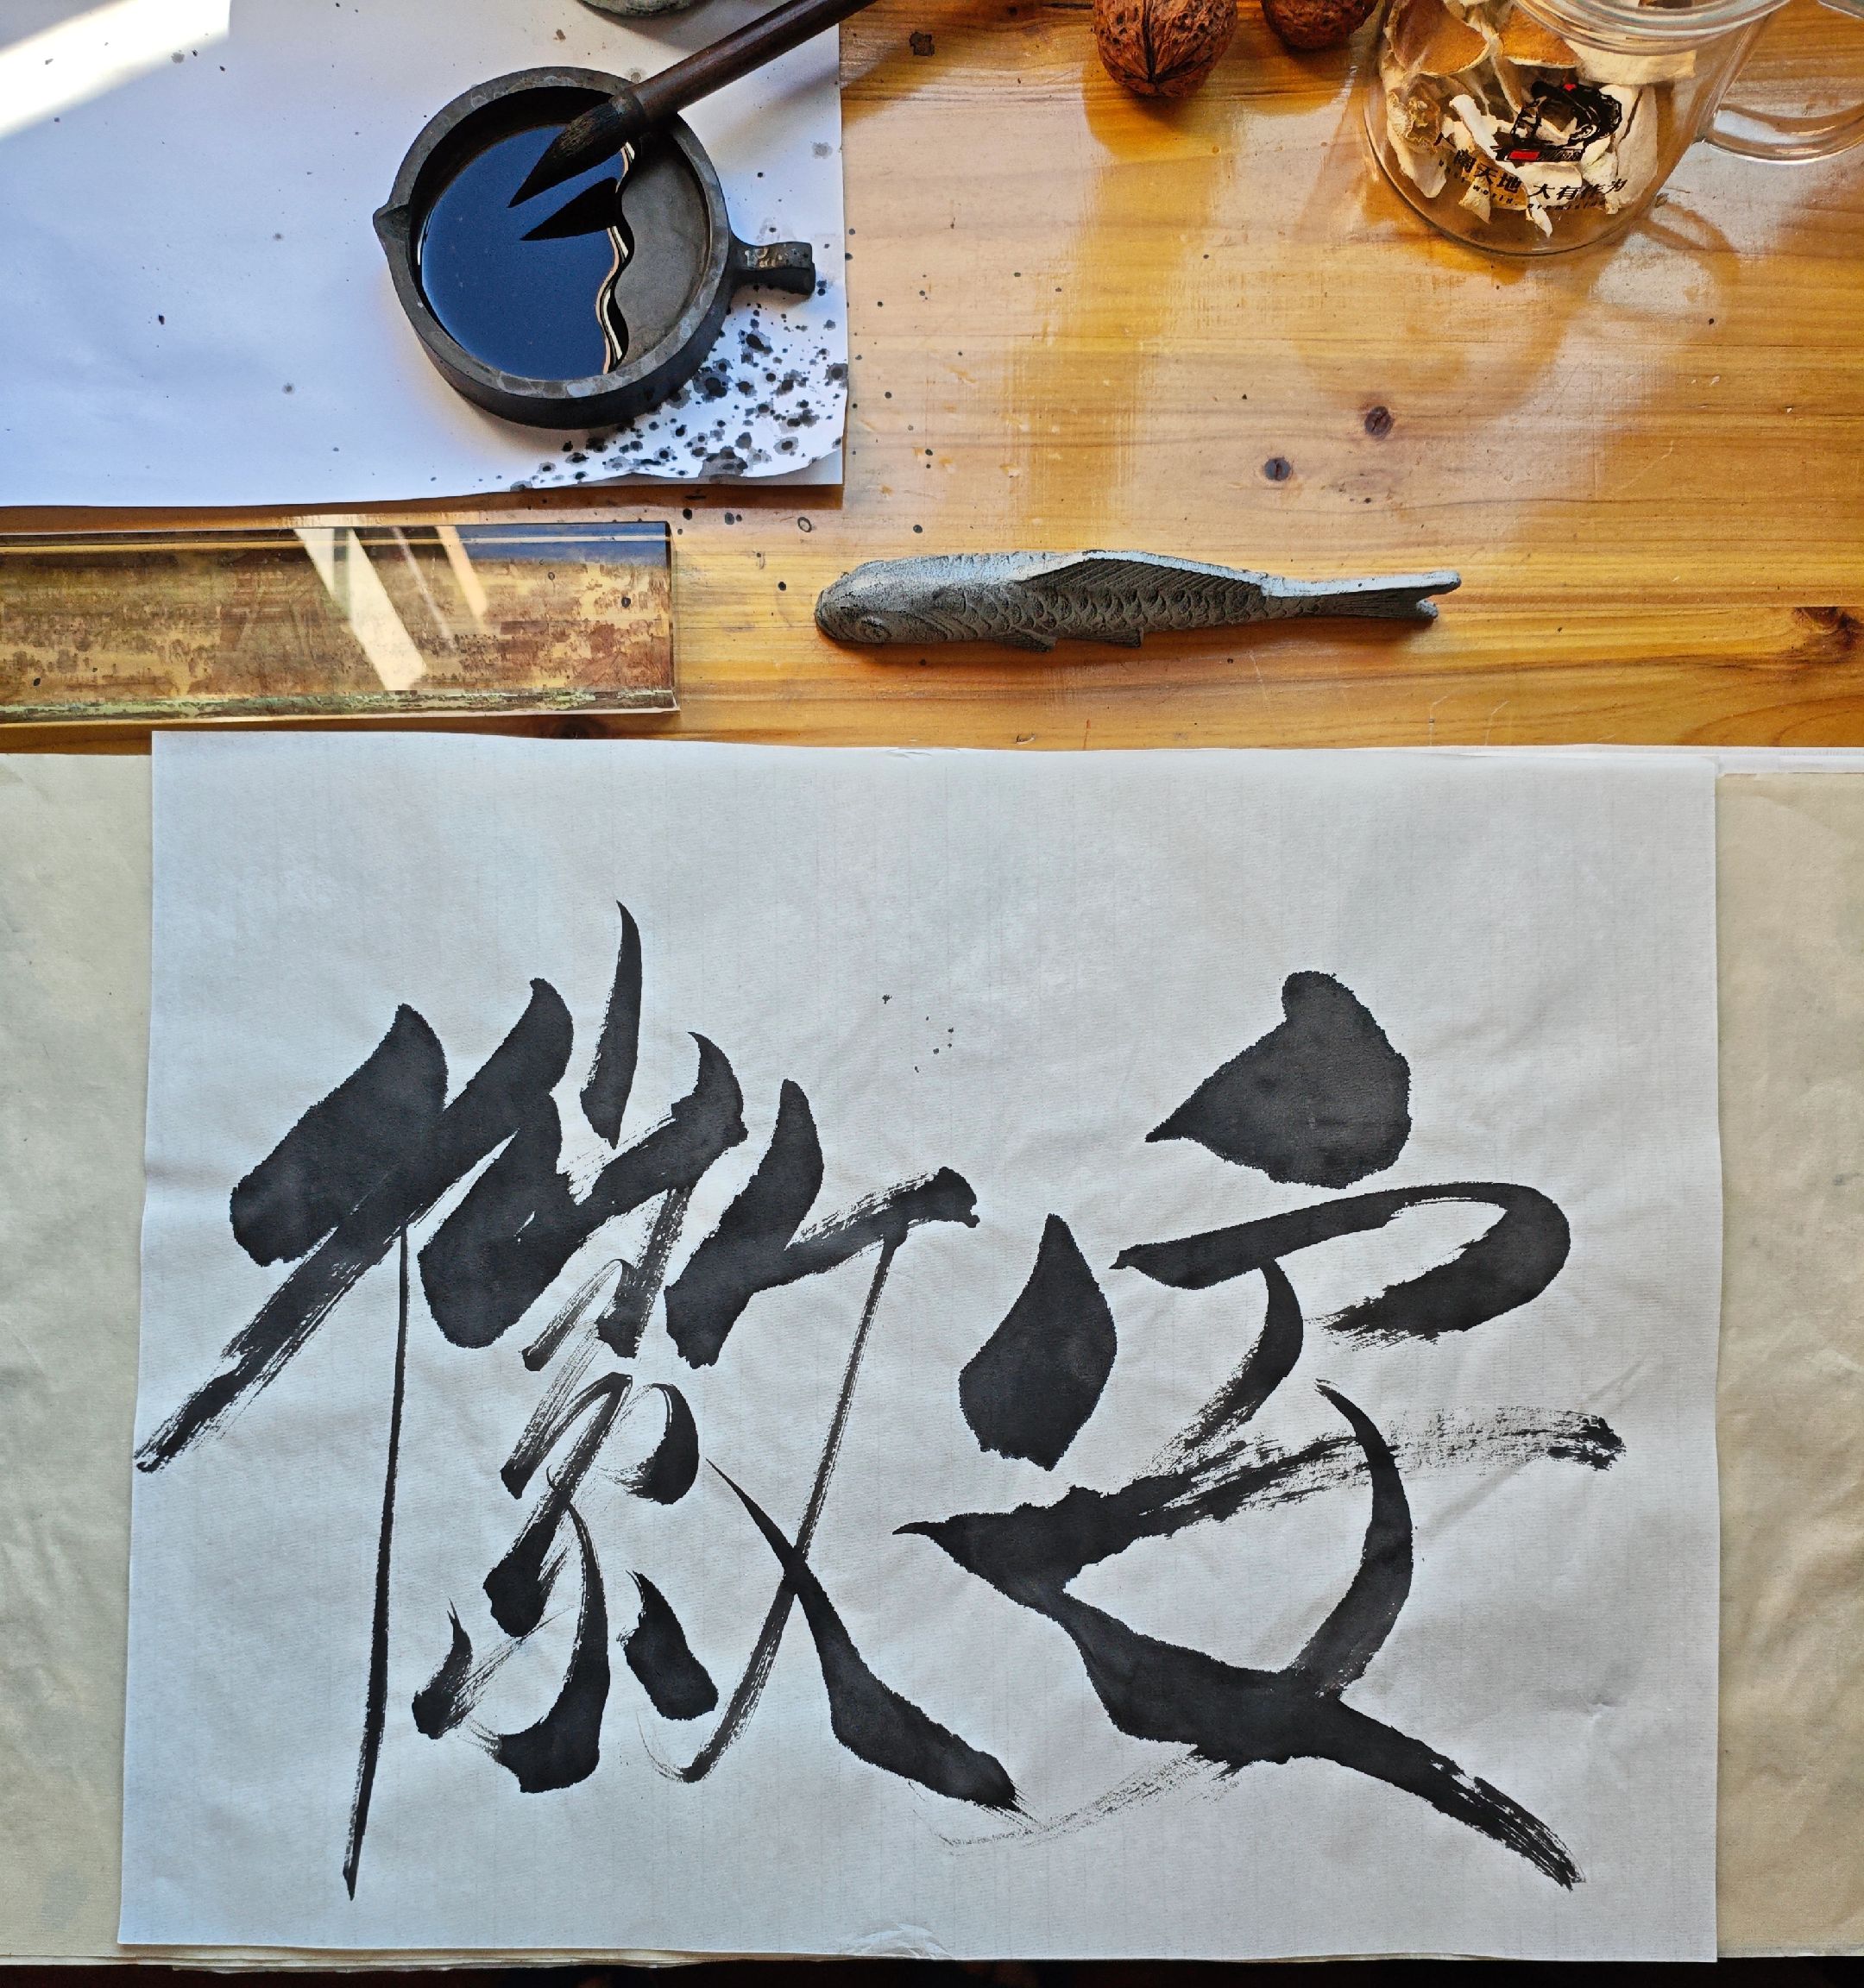 广阔天地 大有作为
安徽